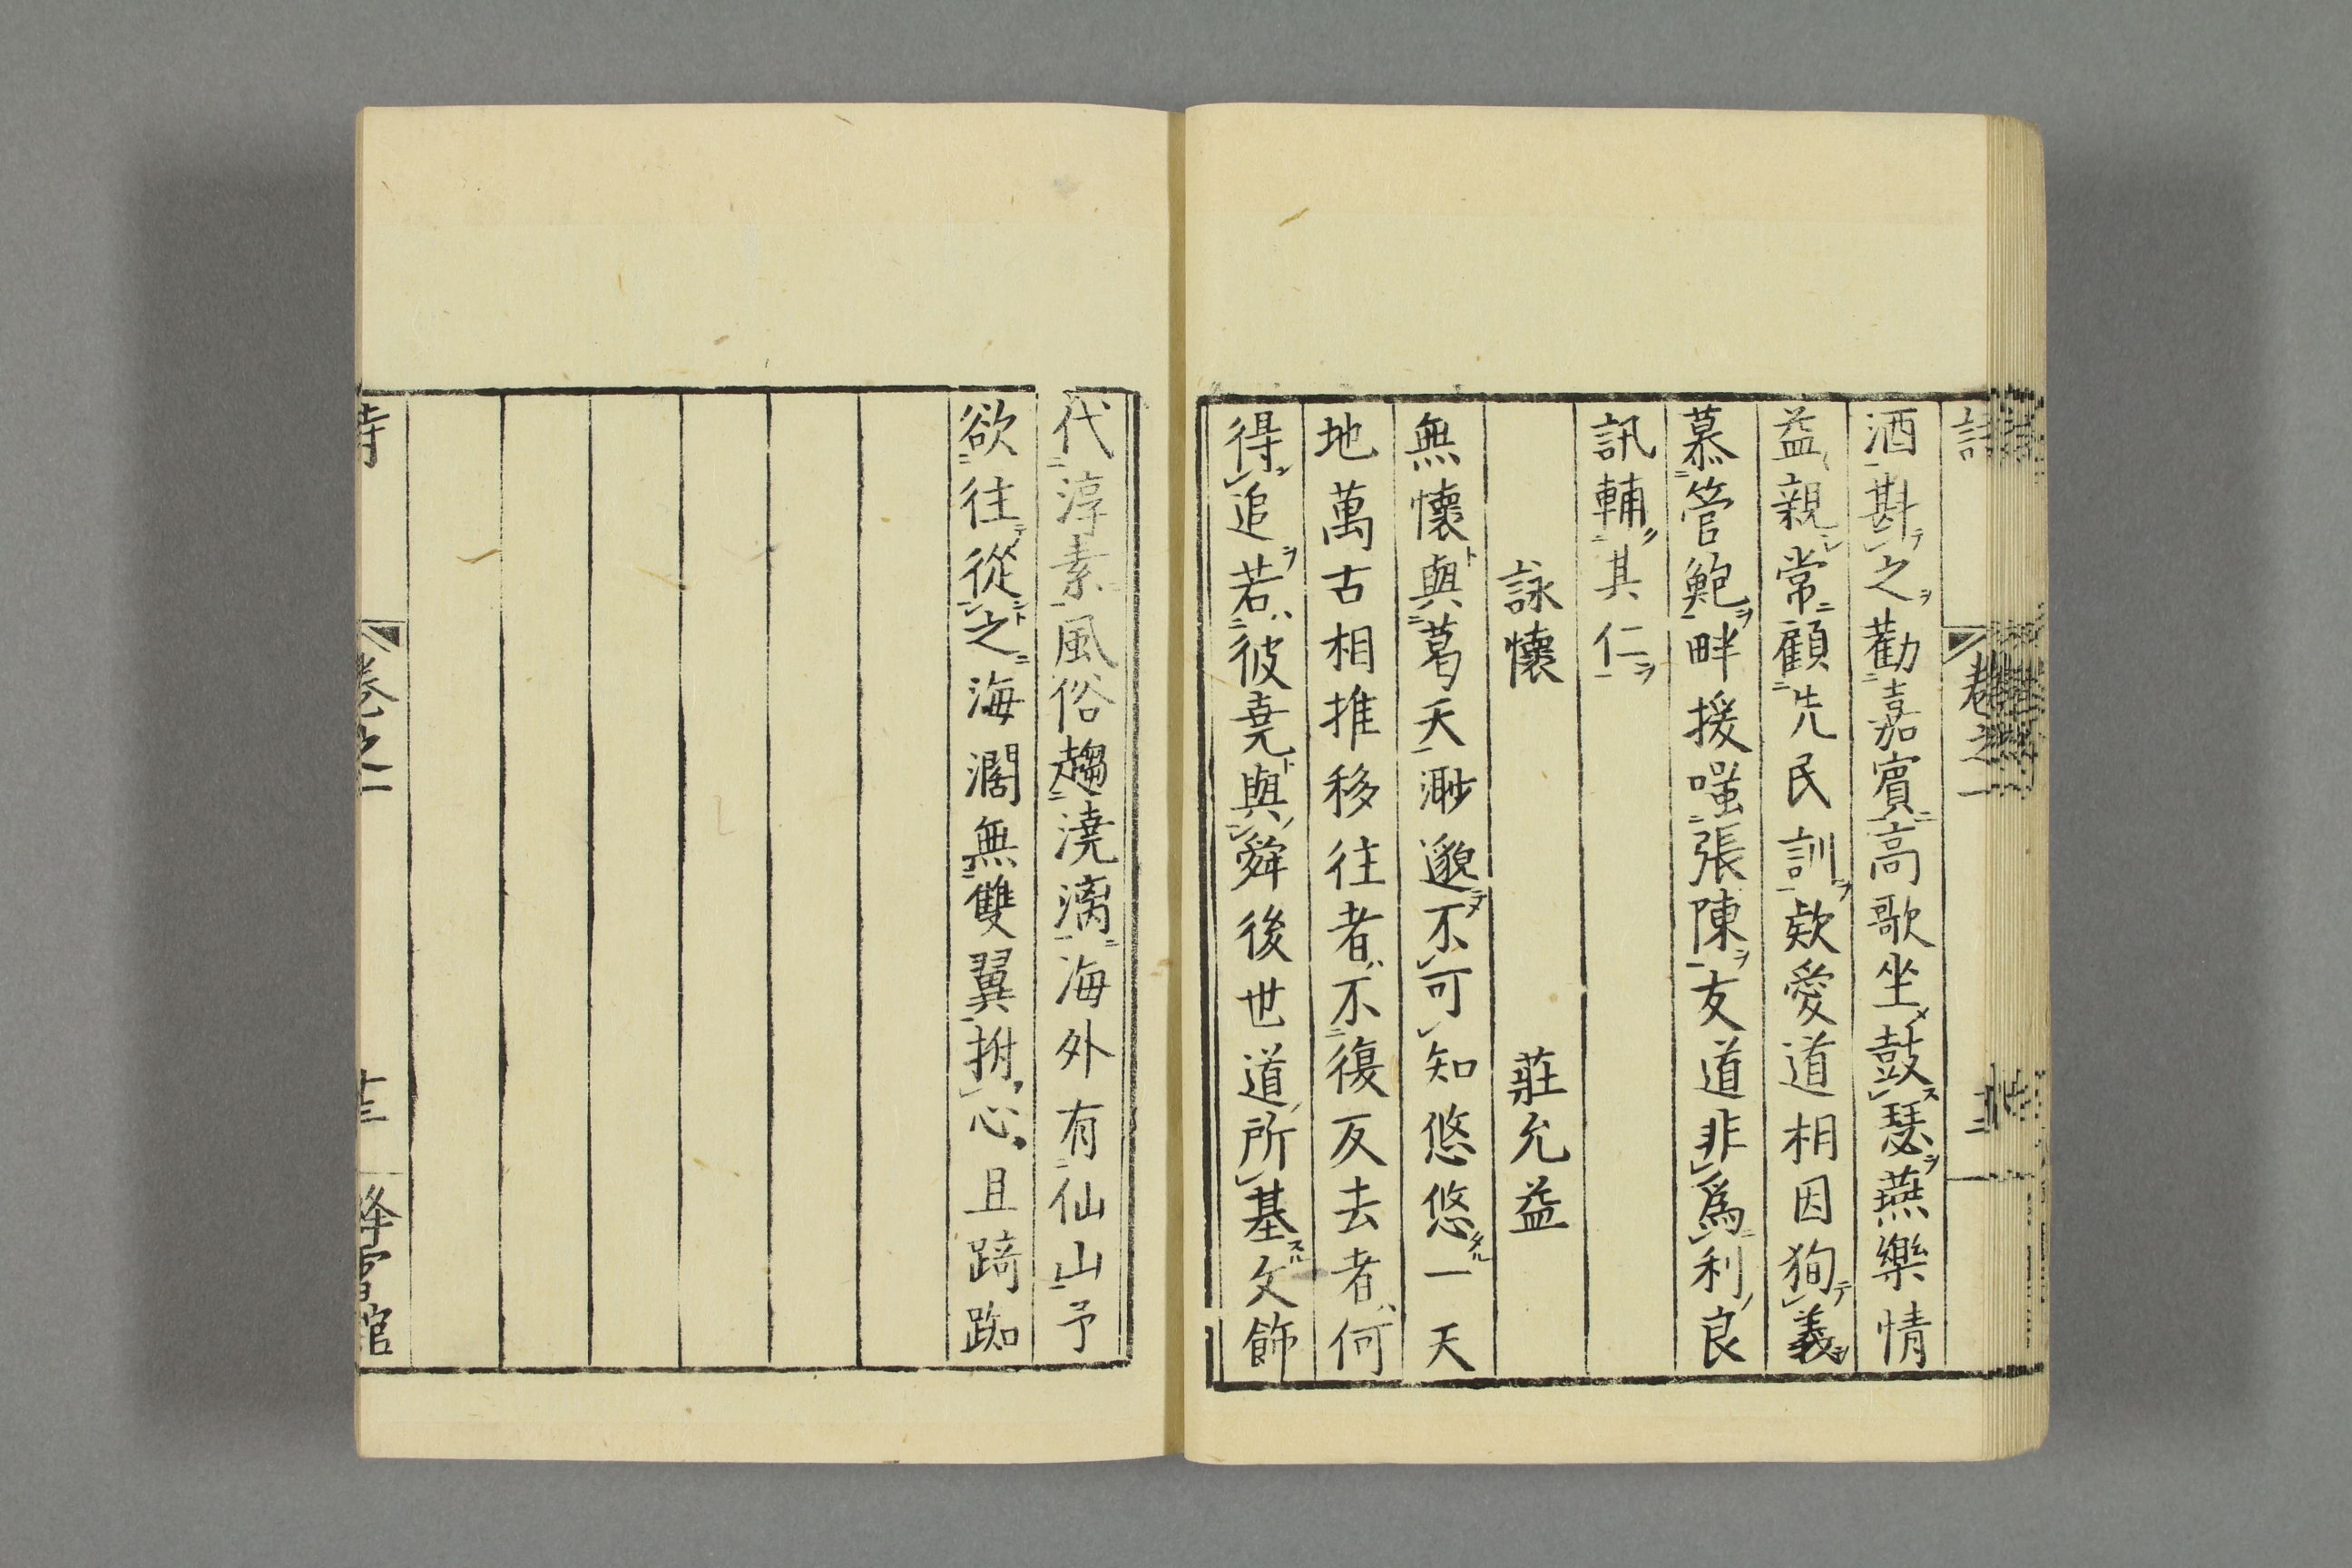 酒斟之勸嘉賓高歌坐鼓瑟燕樂情
益親常顧先民訓欵愛道相因狥義
慕管鮑畔援嗤張陳友道非爲利良
訊輔其仁
詠懷 莊允益
無懷與葛天渺邈不可知悠悠一天
地萬古相推移往者不復反去者何
得追若彼堯與舜後世道所基文飾
代淳素風俗趨澆漓海外有仙山予
欲往從之海濶無雙翼拊心且踦踟
卷之二